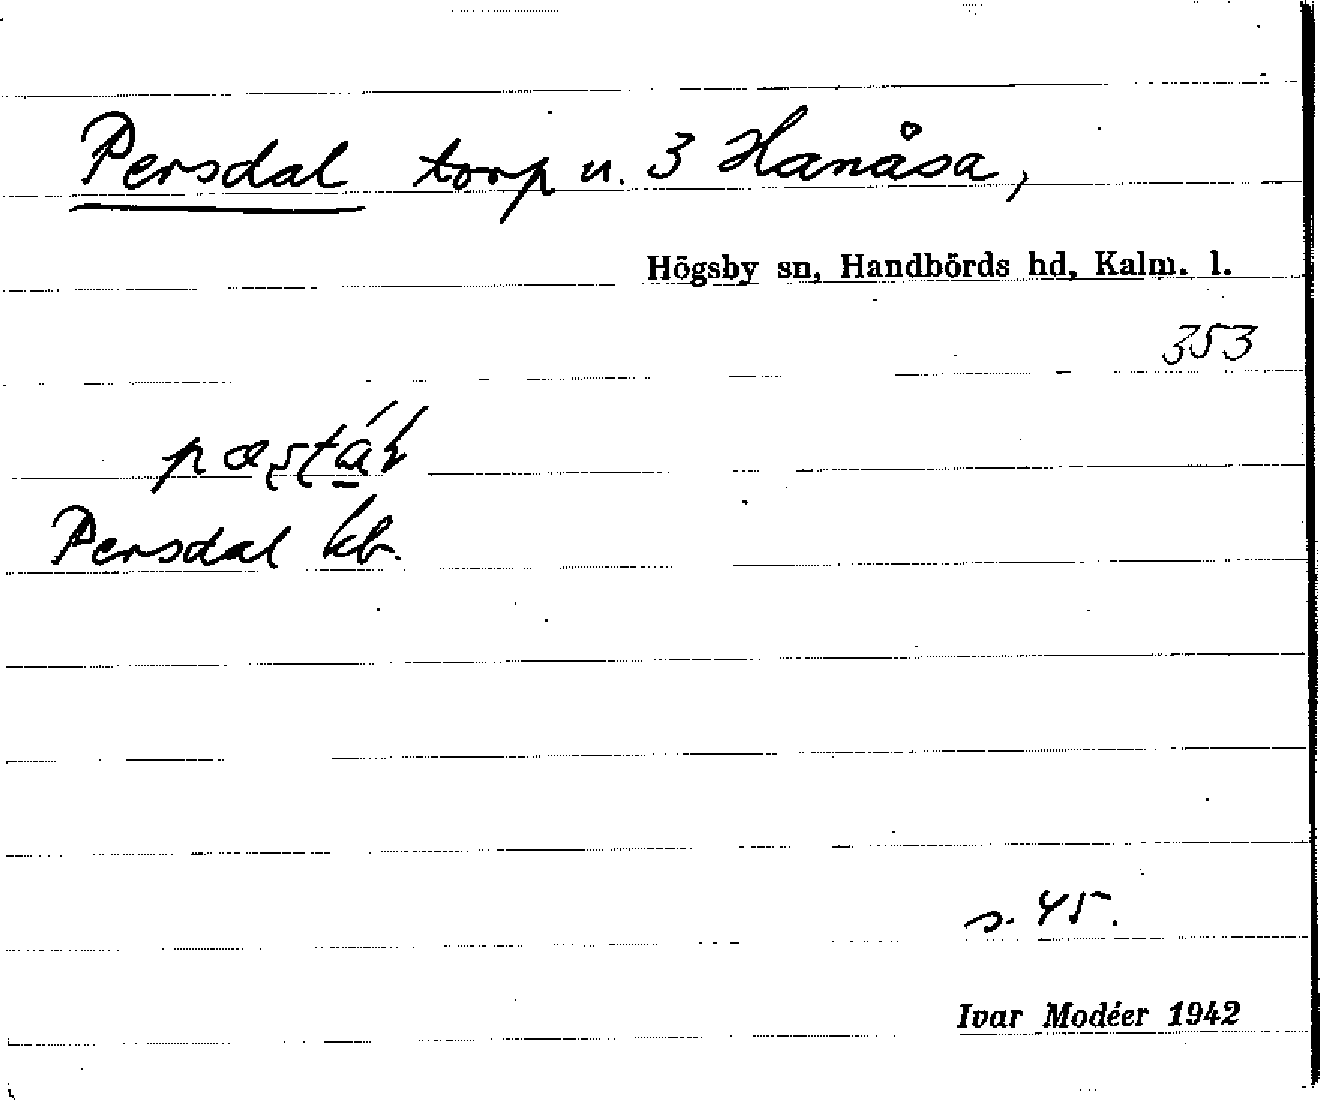 Persdal torp u. 3 Hanåsa,
Högsby sn, Handbörds hd, Kalm. l.
353
Persdal kb.
s. 45.
Ivar Modéer 1942